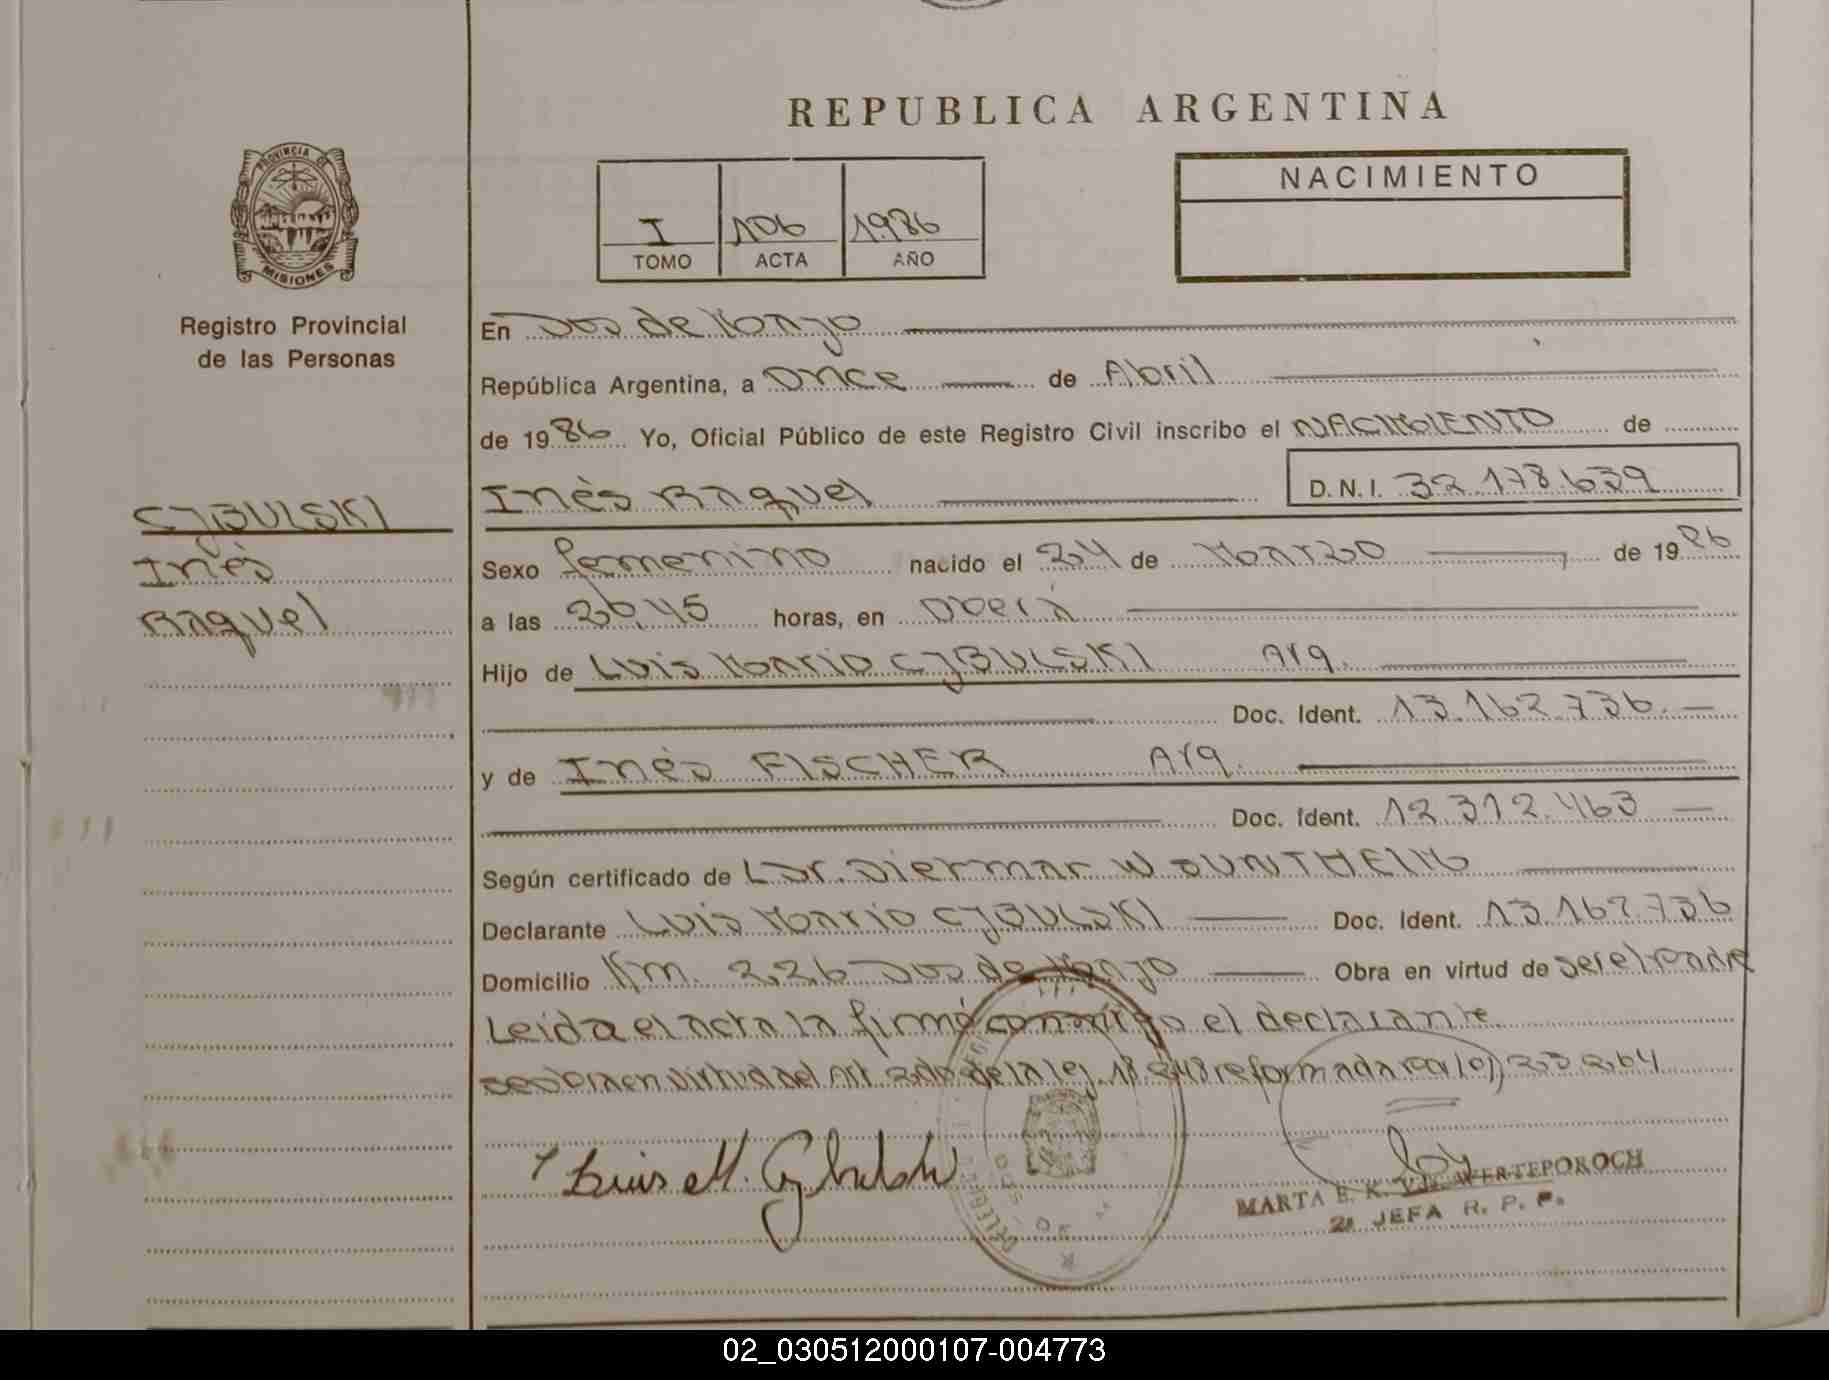 REPUBLICA ARGENTINA
PROVINCIA DE
MISIONES
Registro Provincial
de las Personas
I 106 1986
TOMO ACTA AÑO
NACIMIENTO
En Dos de Mayo
República Argentina, a once de Abril
de 1986 Yo, Oficial Público de este Registro Civil inscribo el NACIMIENTO de
Inés Raquel D.N.I. 32.178.639
CYBULSKI
Inés
Raquel
Sexo femenino nacido el 24 de Marzo de 1986
a las 20,45 horas, en Oberá
Hijo de Luis Mario CYBULSKI Arg.
Doc. Ident. 13.162.736.
y de Inés FISCHER Arg.
Doc. Ident. 12.312.463
Según certificado de Dr. Diermar W
Declarante Luis Mario CYBULSKI Doc. Ident. 13.162.736
Domicilio Km. 226 Dos de Mayo Obra en virtud de ser el padre
Leida el acta la firmó conmigo el declarante
en virtud del Art. 2do de la ley 18.248 reformada por ley
Luis M. Cybulski
MARTA E. K. V. de WERTEPOROCH
2a JEFA R. P. P.
02_030512000107-004773